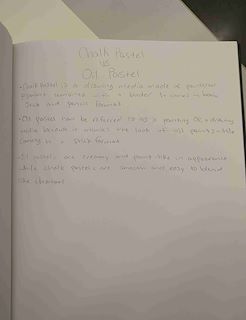 Chalk Pastel
vs
Oil Pastel
• Chalk Pastel is a drawing media made of powdered
pigment combined with a binder to comes in both
stick and pencil format
• Oil pastel can be referred to as a painting or drawing
media because it mimics the look of oil paint while
coming in a stick format
• Oil pastels are creamy and paint-like in appearance
while chalk pastels are smooth and easy to blend
like charcoal